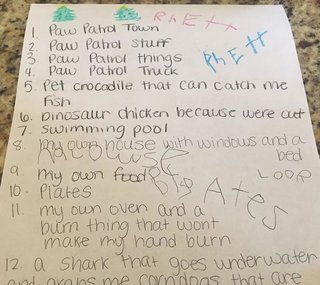 RhEtt
1. Paw Patrol Town
2. Paw Patrol stuff
3 Paw Patrol things
4. Paw Patrol Truck
RhEtt
5. Pet crocodile that can catch me
fish
6. Dinosaur chicken because were out
7. swimming pool
8. my own house with windows and a
bed
9. my own food
10. Plates
11. my own oven and a
burn thing that wont
make my hand burn
12. a shark that goes underwater
and grabs me corndogs that are